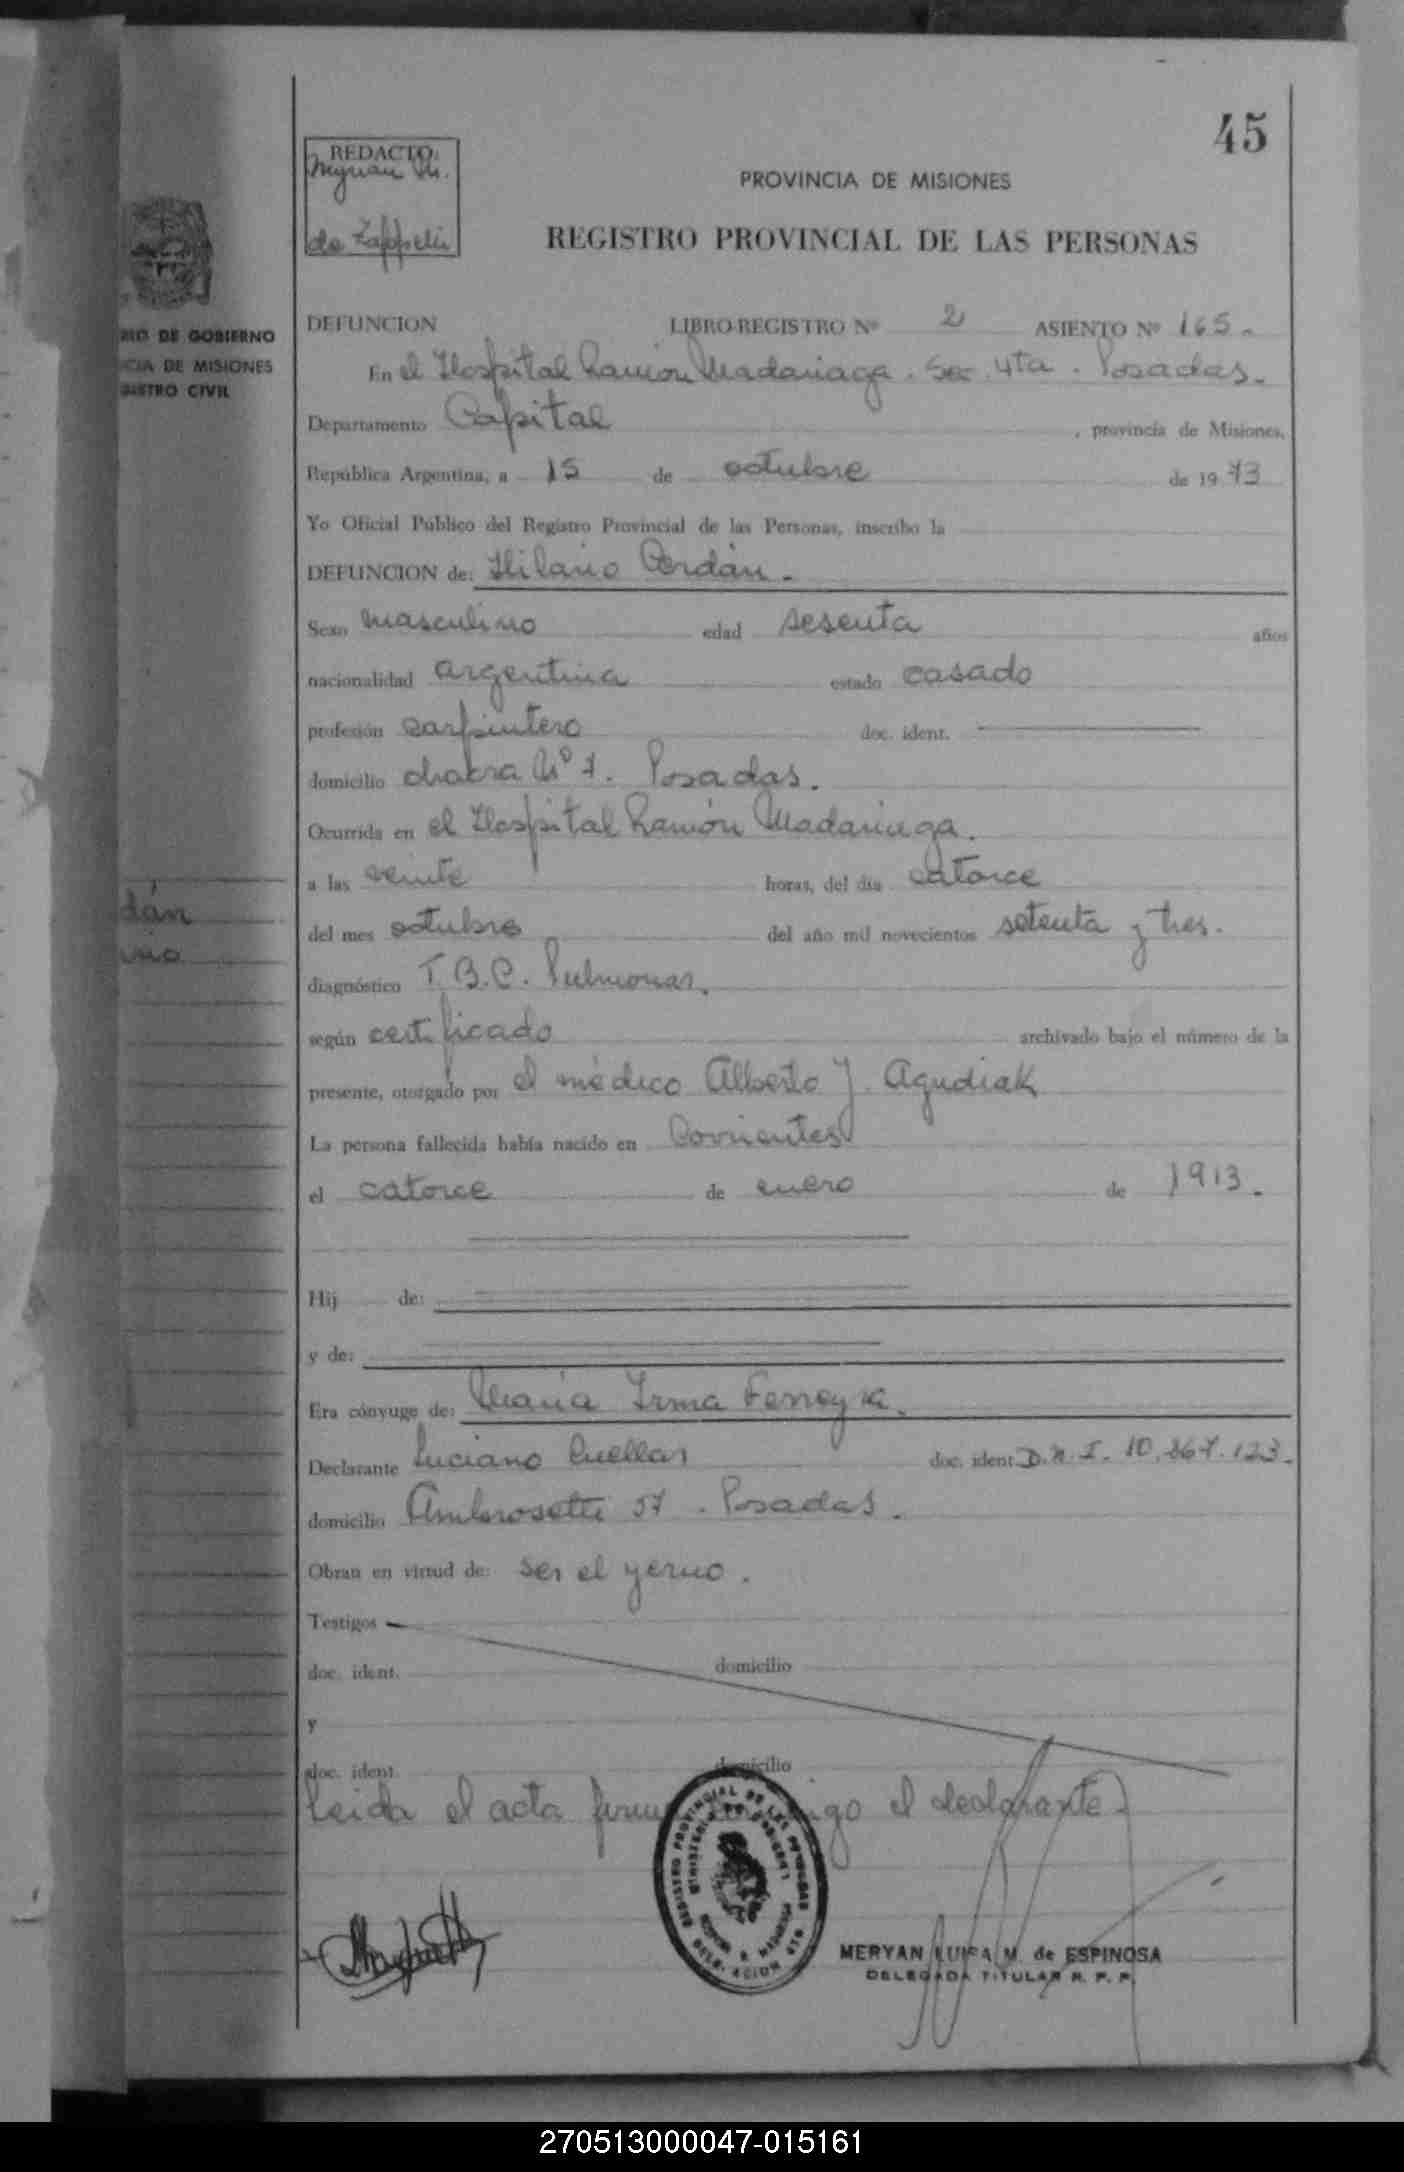 45
REDACTO:
Meryan M.
de Zappelli
PROVINCIA DE MISIONES
REGISTRO PROVINCIAL DE LAS PERSONAS
DE GOBIERNO
DE MISIONES
CIVIL
DEFUNCION LIBRO-REGISTRO Nº 2 ASIENTO Nº 165.
En el Hospital Ramón Madariaga. Sec. 4ta. Posadas.
Departamento Capital, provincia de Misiones,
República Argentina, a 15 de octubre de 1973
Yo Oficial Público del Registro Provincial de las Personas, inscribo la
DEFUNCION de: Hilario Cerdán.
Sexo masculino edad sesenta años
nacionalidad argentina estado casado
profesión carpintero doc. ident.
domicilio chacra Nº 7. Posadas.
Ocurrida en el Hospital Ramón Madariaga.
a las veinte horas, del día catorce
dán
del mes octubre del año mil novecientos setenta y tres.
diagnóstico T.B.C. Pulmonar.
según certificado archivado bajo el número de la
presente, otorgado por el médico Alberto J. Agudiak
La persona fallecida había nacido en Corrientes
el catorce de enero de 1913.
Hij de:
y de:
Era cónyuge de: María Irma Ferreyra.
Declarante Luciano Cuellar doc. ident. D.N.I. 10.867.123.
domicilio Ambrosetti 57. Posadas.
Obran en virtud de: ser el yerno.
Testigos
doc. ident. domicilio
y
doc. ident. domicilio
Leida el acta el declarante
REGISTRO PROVINCIAL DE LAS PERSONAS
MINISTERIO DE GOBIERNO
HOSPITAL R. MADARIAGA
DELEGACION 4TA
MERYAN LUISA M. de ESPINOSA
DELEGADA TITULAR R. P. P.
270513000047-015161